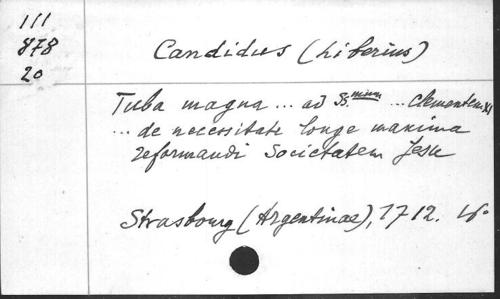 111
878
20
Candidus (Liberius)
Tuba magna ... ad SS.mum ... Clementem XI
... de necessitate longe maxima
reformandi Societatem Jesu
Strasbourg (Argentinae), 1712.